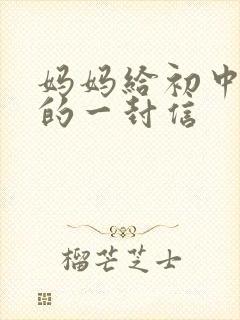 妈妈给初中
的一封信
榴芒芝士